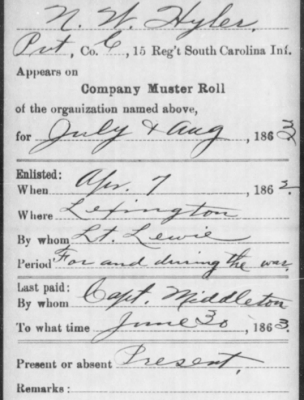 N. W. Hyler,
Pvt, Co. C, 15 Reg't South Carolina Inf.
Appears on
Company Muster Roll
of the organization named above,
for July & Aug, 1863
Enlisted:
When Apr. 7, 1862.
Where Lexington
By whom Lt. Lewie
Period For and during the war
Last paid:
By whom Capt. Middleton
To what time June 30, 1863.
Present or absent Present.
Remarks: